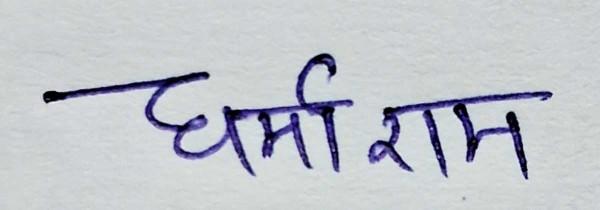 धर्मा राम